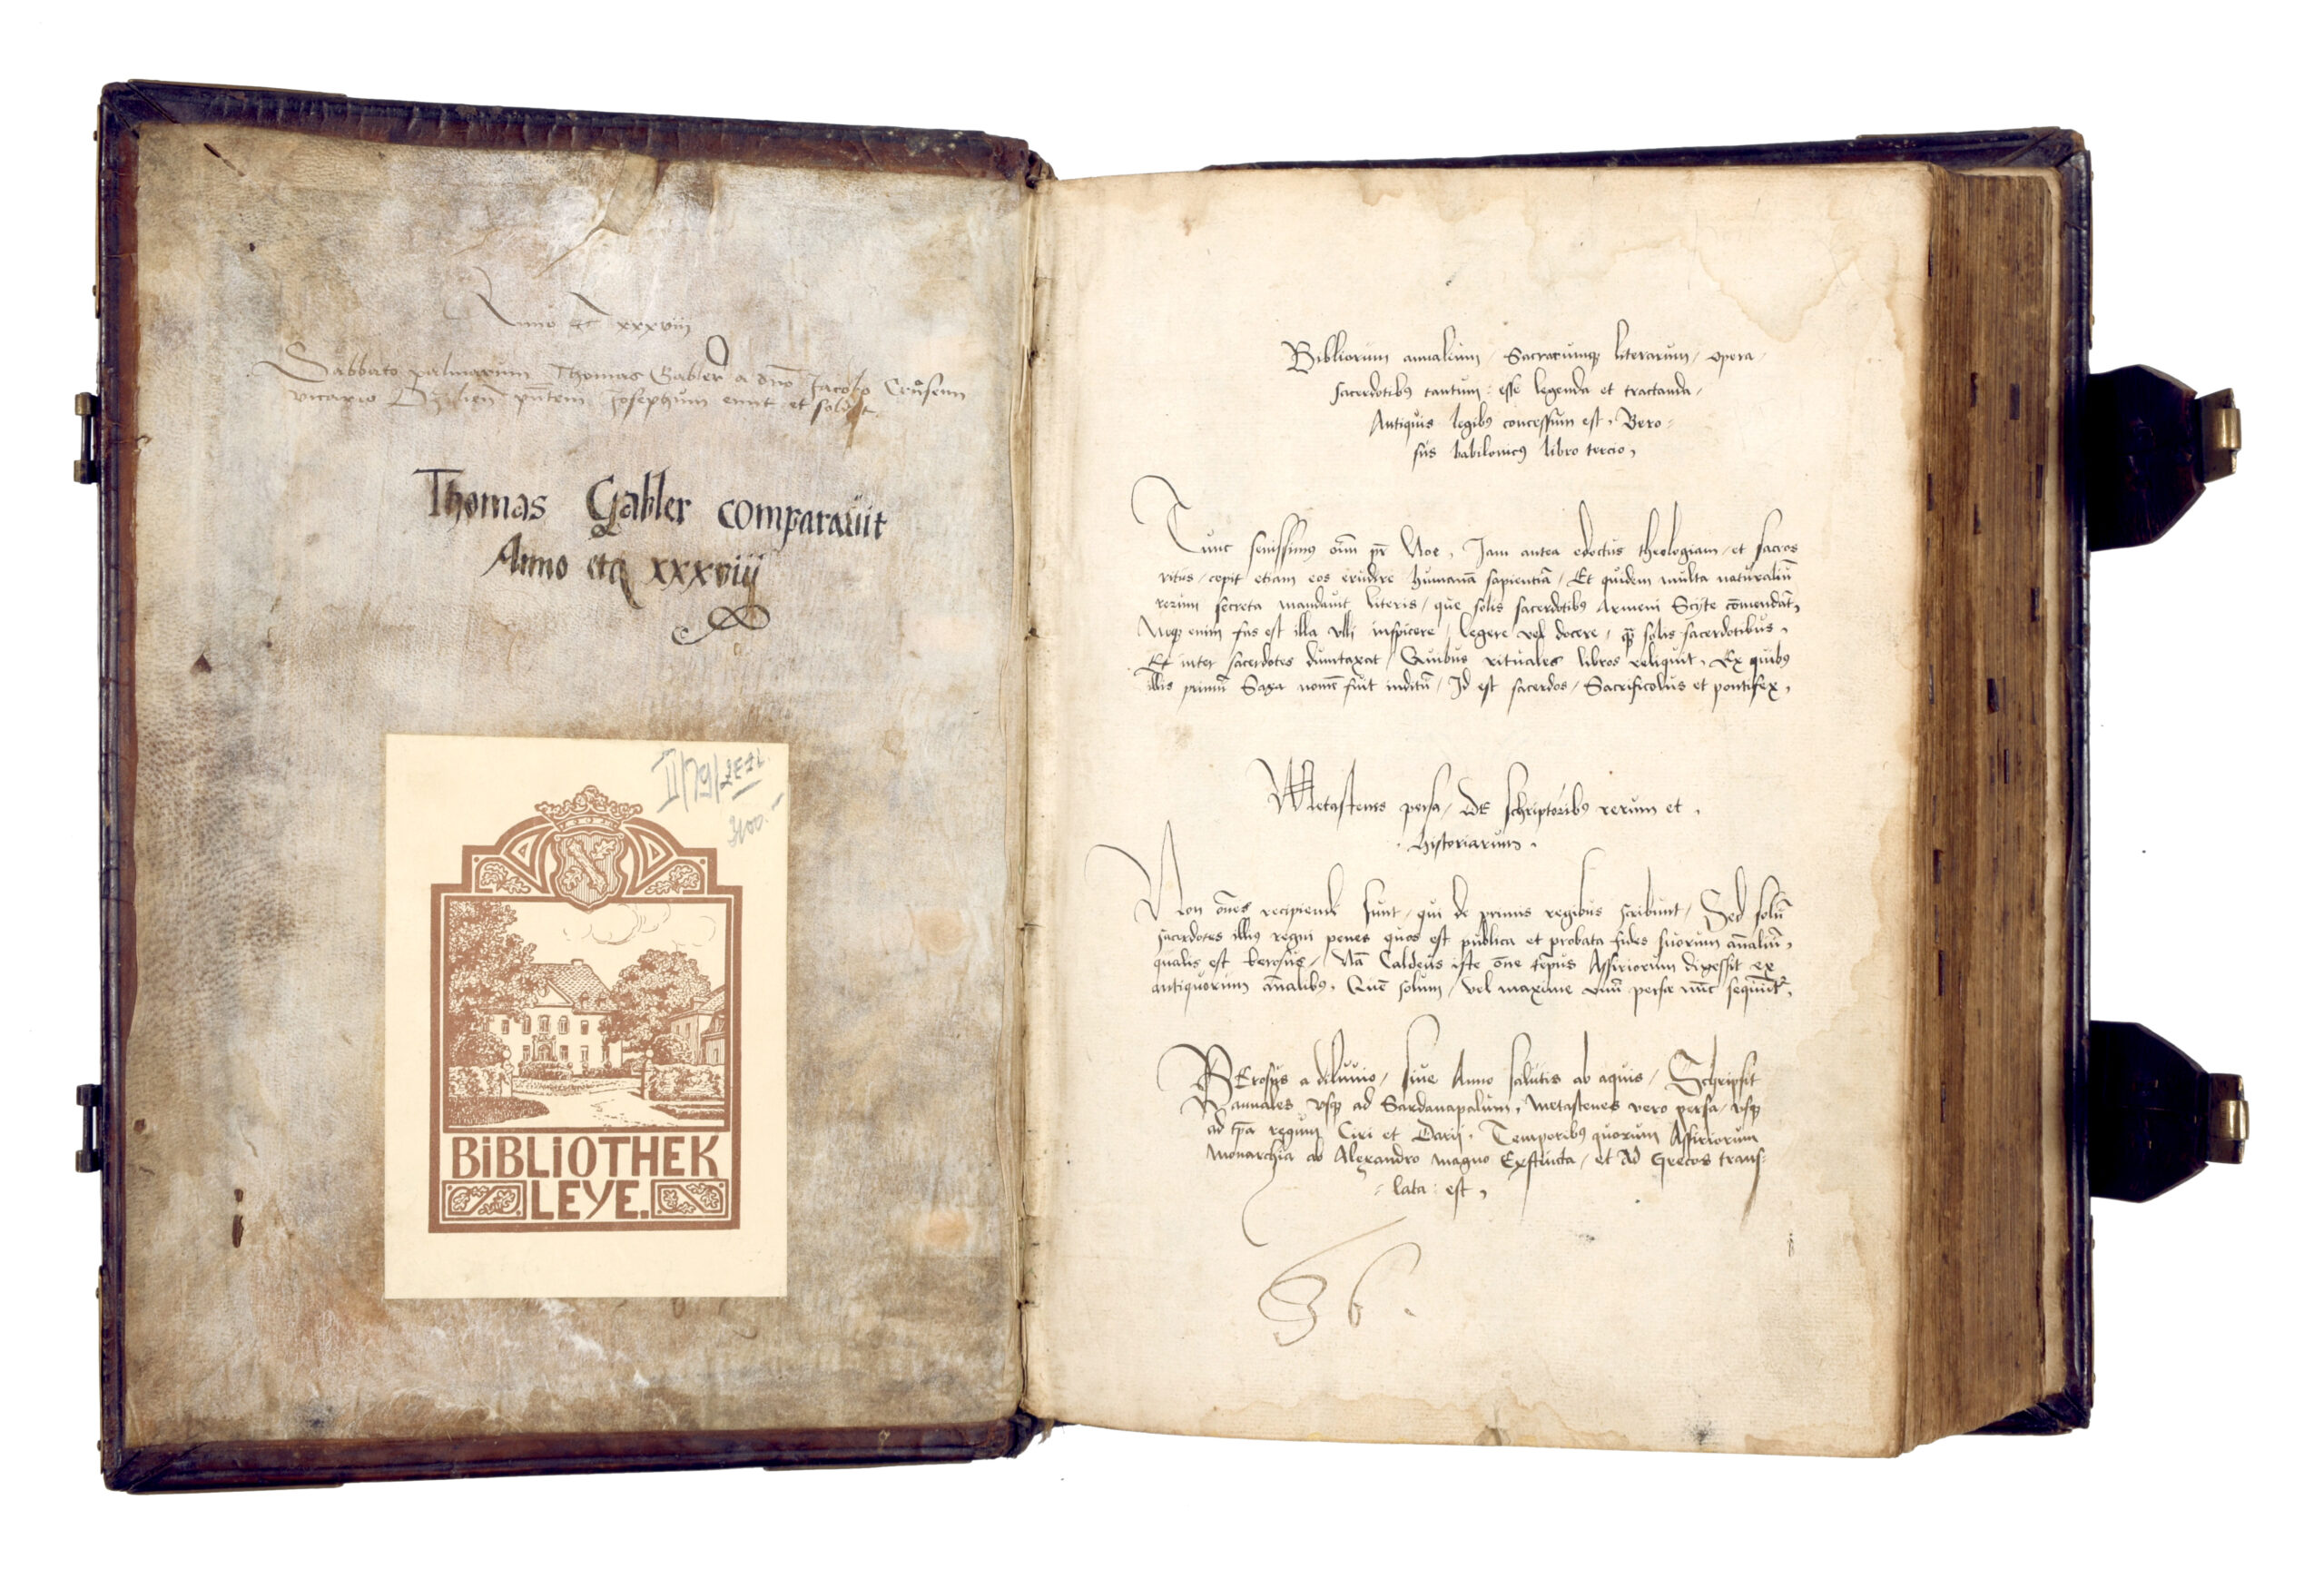 Anno etc xxxviij
Sabbato palmarum Thomas Gabler a dno Jacobo Crusenn
vicario pñtem Josephum emit et soldit
Thomas Gabler comparauit
Anno etc xxxviij
II/79/
BiBLiOTHEK
LEYE.
Bibliorum annalium / Sacrarumq literarum / opera /
sacerdotibꝯ tantum : esse legenda et tractanda /
Antiquis legibꝯ concessum est, Bero-
sus babilonicꝯ libro tercio,
Tunc senissimꝯ oim pr Noe, Jam antea edoctus theologiam / et sacros
ritus / cepit etiam eos erudire humanā sapientiā / Et quidem multa naturaliū
rerum secreta mandauit literis / que solis sacerdotibꝯ Armeni Scyte comendāt,
Neqꝫ enim fas est illa vlli inspicere / legere vel docere / qꝫ solis sacerdotibus,
Et inter sacerdotes dumtaxat / Quibus rituales libros reliquit, Ex quibꝯ
illis primū Saga nomē fuit inditū / Id est sacerdos / Sacrificolus et pontifex,
Metastenes persa / DE schriptoribꝯ rerum et,
historiarum,
Non oēs recipiendi sunt / qui de primis regibus scribunt / Sed solū
sacerdotes illiꝯ regni penes quos est publica et probata fides suorum annaliū,
qualis est berosus / Nā Caldeus iste ōne tēpus Assiriorum digessit ex
antiquorum ānalibꝯ, Quē solum / vel maxime vnū persæ nūc sequūtr,
BErosus a diluuio / siue Anno salutis ab aquis / Schripsit
annales vsqꝫ ad Sardanapalum, Metastenes vero persa / vsqꝫ
ad tpa regum Ciri et Darij, Temporibꝯ quorum Assiriorum
Monarchia ab Alexandro magno Exstincta / et Ad Grecos trans-
-lata : est,
36.